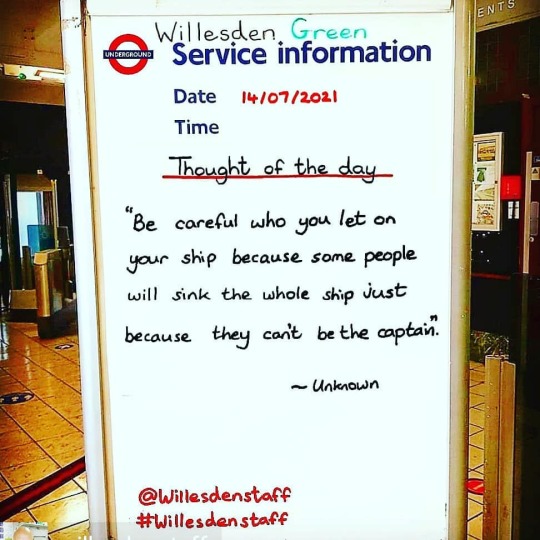 Willesden Green
UNDERGROUND
Service information
Date 14/07/2021
Time
Thought of the day
"Be careful who you let on
your ship because some people
will sink the whole ship just
because they can't be the captain."
~ Unknown
@Willesdenstaff
#Willesdenstaff
ENTS